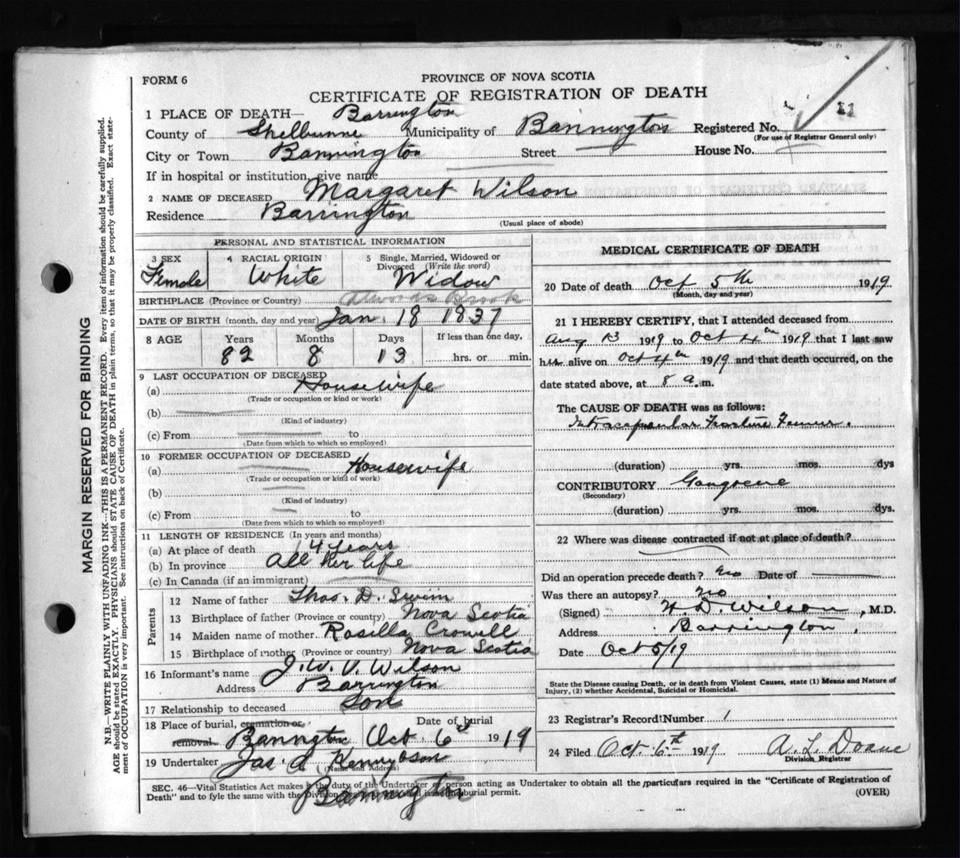 FORM 6
PROVINCE OF NOVA SCOTIA
CERTIFICATE OF REGISTRATION OF DEATH
1 PLACE OF DEATH— Barrington
County of Shelburne Municipality of Barrington Registered No. 11
(For use of Registrar General only)
City or Town Barrington Street House No.
If in hospital or institution, give name
2 NAME OF DECEASED Margaret Wilson
Residence Barrington
(Usual place of abode)
PERSONAL AND STATISTICAL INFORMATION
3 SEX 4 RACIAL ORIGIN 5 Single, Married, Widowed or Divorced (Write the word)
Female White Widow
BIRTHPLACE (Province or Country) Brook
DATE OF BIRTH (month, day and year) Jan. 18 1837
8 AGE Years Months Days If less than one day,
82 8 13 hrs. or min.
9 LAST OCCUPATION OF DECEASED
(a) Housewife
(Trade or occupation or kind or work)
(b)
(Kind of industry)
(c) From to
(Date from which to which so employed)
10 FORMER OCCUPATION OF DECEASED
(a) Housewife
(Trade or occupation or kind of work)
(b)
(Kind of industry)
(c) From to
(Date from which to which so employed)
11 LENGTH OF RESIDENCE (In years and months)
(a) At place of death 14 years
(b) In province All her life
(c) In Canada (if an immigrant)
Parents
12 Name of father Thos. D. Swim
13 Birthplace of father (Province or country) Nova Scotia
14 Maiden name of mother Rosilla Crowell
15 Birthplace of mother (Province or country) Nova Scotia
16 Informant's name J. W. V. Wilson
Address Barrington
17 Relationship to deceased Son
18 Place of burial, cremation or removal Barrington Date of burial Oct 6th 1919
19 Undertaker Jas. A. Kenny & son
(Name and Address)
Barrington
MEDICAL CERTIFICATE OF DEATH
20 Date of death Oct 5th 1919
(Month, day and year)
21 I HEREBY CERTIFY, that I attended deceased from
Aug 13 1919 to Oct 4th 1919 that I last saw
her alive on Oct 4th 1919 and that death occurred, on the
date stated above, at 8 a.m.
The CAUSE OF DEATH was as follows:
Intracapsular Fracture Femur.
(duration) yrs. mos. dys
CONTRIBUTORY Gangrene
(Secondary)
(duration) yrs. mos. dys.
22 Where was disease contracted if not at place of death?
Did an operation precede death? no Date of
Was there an autopsy? no
(Signed) H D Wilson, M.D.
Address Barrington,
Date Oct 5/19
State the Disease causing Death, or in death from Violent Causes, state (1) Means and Nature of
Injury, (2) whether Accidental, Suicidal or Homicidal.
23 Registrar's Record Number 1
24 Filed Oct. 6th 1919 A. L. Doane
Division Registrar
SEC. 46—Vital Statistics Act makes it the duty of the Undertaker or person acting as Undertaker to obtain all the particulars required in the "Certificate of Registration of
Death" and to fyle the same with the Division burial permit.
(OVER)
MARGIN RESERVED FOR BINDING
N.B.—WRITE PLAINLY WITH UNFADING INK—THIS IS A PERMANENT RECORD. Every item of information should be carefully supplied.
AGE should be stated EXACTLY. PHYSICIANS should STATE CAUSE OF DEATH in plain terms, so that it may be properly classified. Exact state-
ment of OCCUPATION is very important. See instructions on back of Certificate.